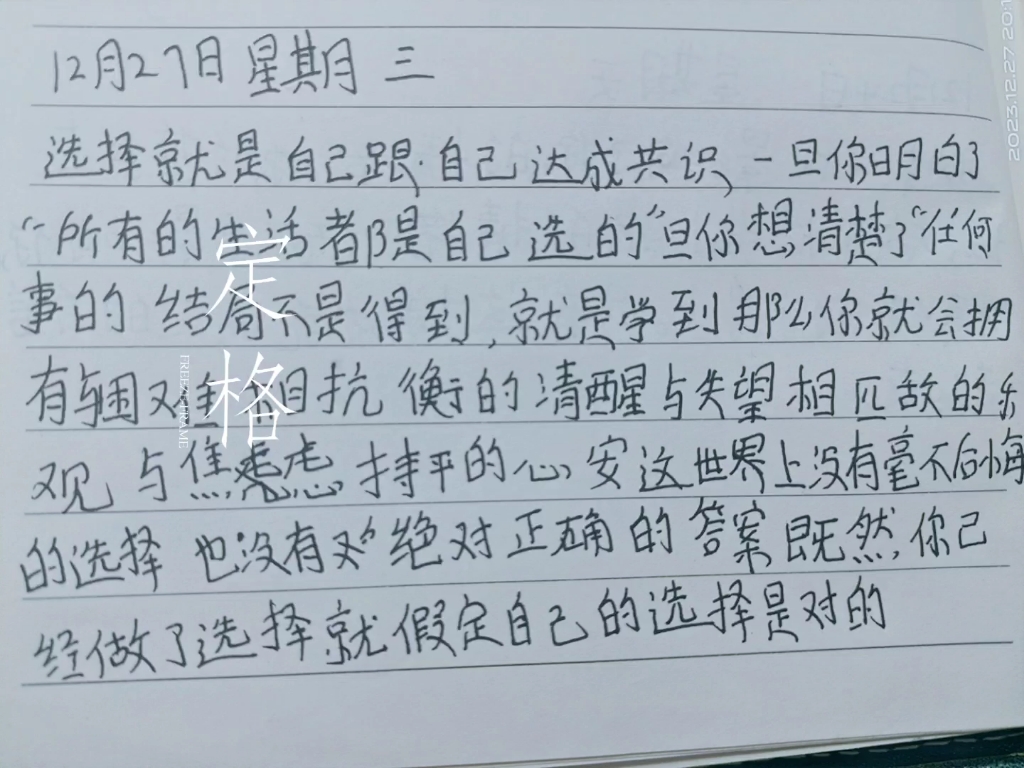 12月27日 星期 三
选择就是自己跟·自己达成共识,一旦你明白了
“所有的生活都是自己选的”旦你想清楚了“任何
事的 结局不是得到,就是学到 那么你就会拥
有与困双 目抗衡的清醒与失望相匹敌的乐
观 与焦虑 持平的心安这世界上没有毫不后悔
的选择 也没有 绝对正确的答案 既然,你已
经做了选择就假定自己的选择是对的
定格
FREEZE FRAME
2023.12.27 20:1